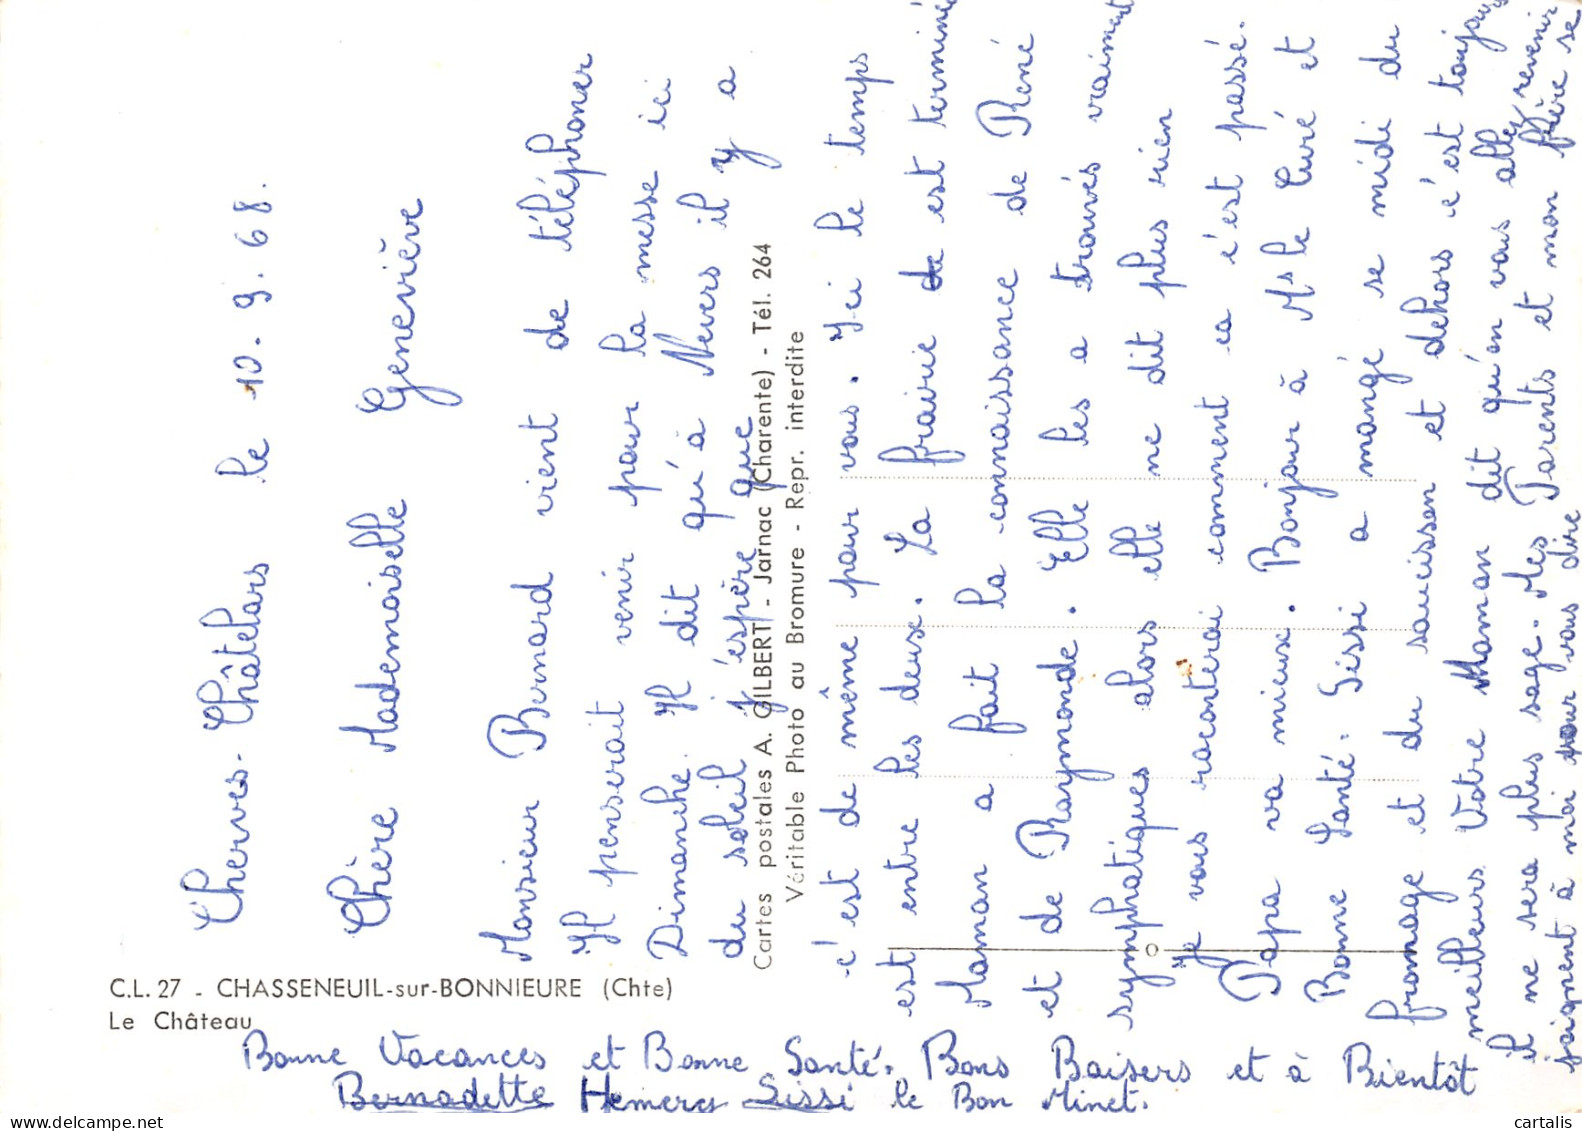 Cherves-Châtelars le 10.9.68.
Chère Mademoiselle Geneviève
Monsieur Bernard vient de téléphoner
Il penserait venir pour la messe ici
Dimanche. Il dit qu'à Nevers il y a
du soleil j'espère que
c'est de même pour vous. Ici le temps
est entre les deux. La frairie de est terminé
Maman a fait la connaissance de René
et de Raymonde. Elle les a trouvés vraiment
symphatiques alors elle ne dit plus rien
Je vous raconterai comment ca c'est passé.
Papa va mieux. Bonjour à Mr le Curé et
Bonne Santé. Sissi a mangé se midi du
fromage et du saucisson et dehors c'est toujours
meilleurs Votre Maman dit qu'en vous allez revenir
il ne sera plus sage. Mes Parents et mon frère se
joignent à moi pour vous dire
Bonne Vacances et Bonne Santé. Bons Baisers et à Bientôt
Bernadette Hemery Sissi le Bon Minet.
C.L. 27 - CHASSENEUIL-sur-BONNIEURE (Chte)
Le Château
Cartes postales A. GILBERT - Jarnac (Charente) - Tél. 264
Véritable Photo au Bromure - Repr. interdite
delcampe.net
cartalis